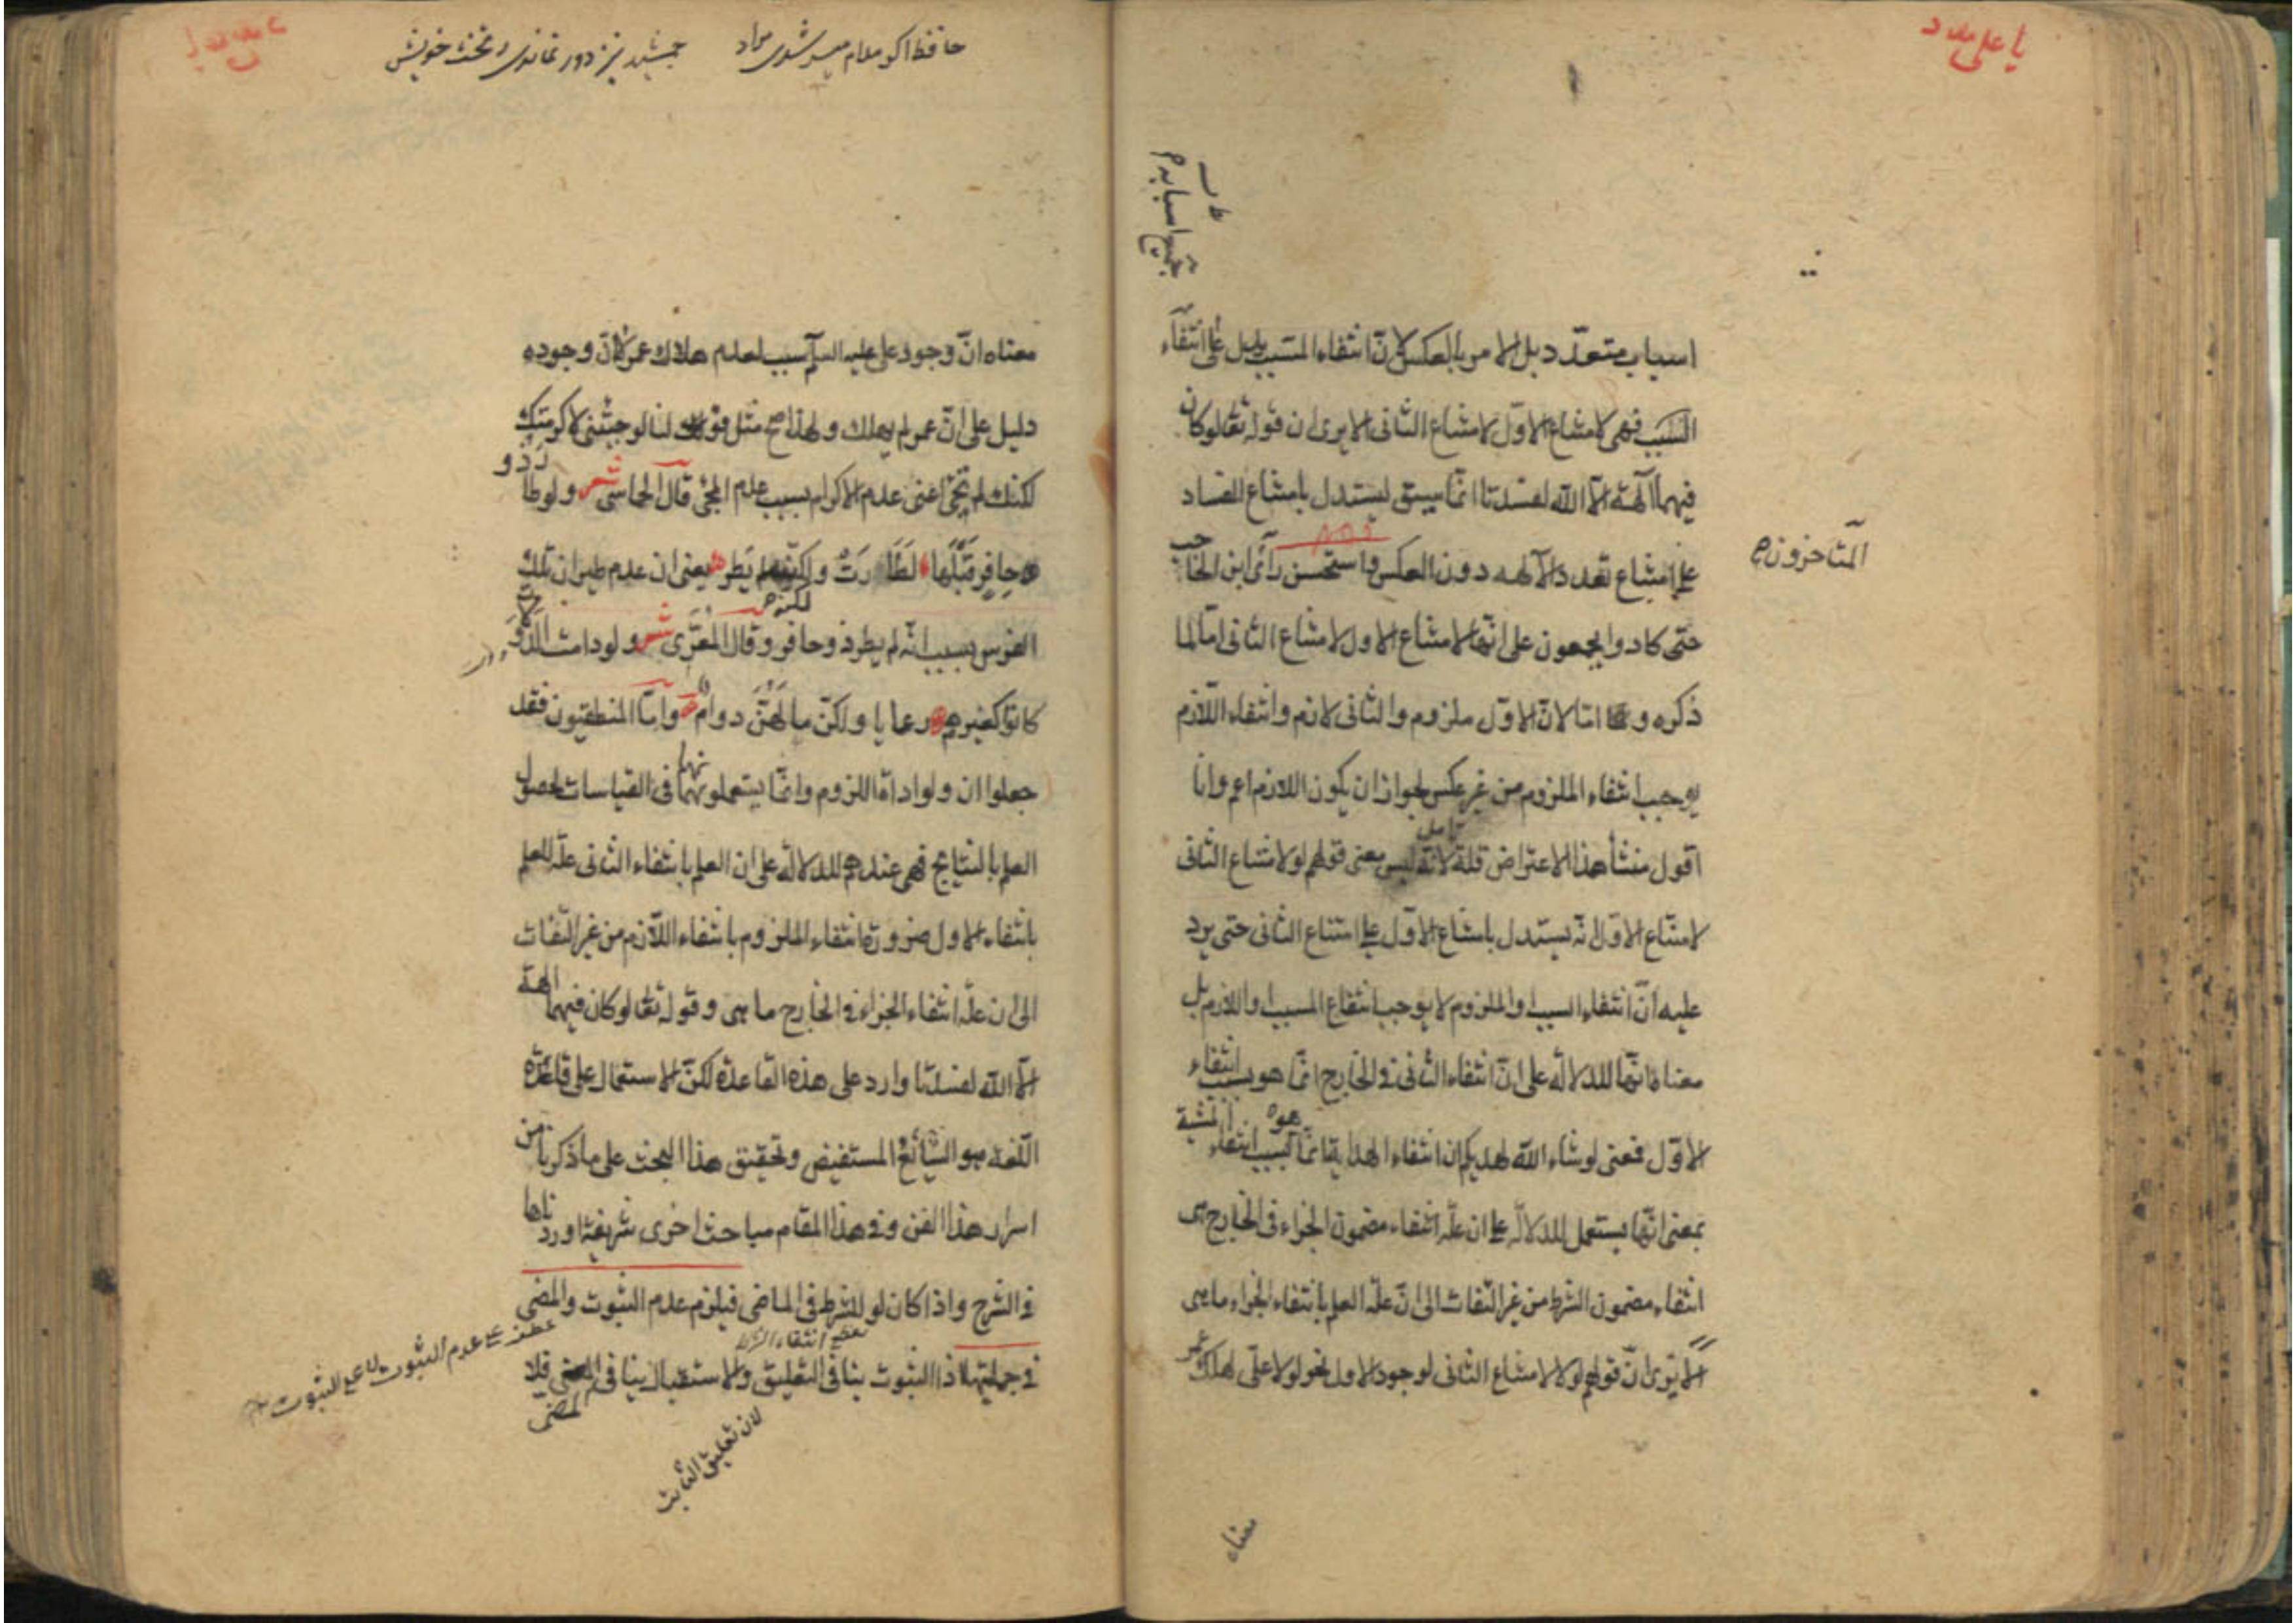 يا على مدد
جميع اسبابه م
اسباب متعدّد بل الامر بالعكس لانّ انتفاء المسبب يدل على انتفاء
السبب فهى لامتناع الاوّل لامتناع الثانى الا يرى ان قوله تعالى لو كان
فيهما آلهة الا الله لفسدتا انّما سيق ليستدل بامتناع الفساد
على امتناع تعدد الآلهه دون العكس واستحسن رأى ابن الحاجب
المتأخرون
حتّى كادوا يجمعون على انّها لامتناع الاول لامتناع الثانى امّا لما
ذكره و امّا لانّ الاوّل ملزوم والثانى لازم وانتفاء اللّازم
يوجب انتفاء الملزوم من غير عكس لجواز ان يكون اللازم اعم وانا
اقول منشأ هذا الاعتراض قلة تامل لانّه ليس معنى قولهم لو لامتناع الثانى
لامتناع الاوّل انّه يستدل بامتناع الاوّل على امتناع الثانى حتى يرد
عليه انّ انتفاء السبب او الملزوم لا يوجب انتفاع المسبب او اللازم بل
معناه انّها للدلالة على انّ انتفاء الثانى فى الخارج انّما هو بسبب انتفاء
الاوّل فمعنى لو شاء الله لهديكم ان انتفاء الهداية انّما هو بسبب انتفاء المشية
بمعنى انّها يستعمل للدلالة على ان علّة انتفاء مضمون الجزاء فى الخارج هى
انتفاء مضمون الشرط من غير التفات الى انّ علّة العلم بانتفاء الجزاء ما هى
الا يرى انّ قولهم لولا لامتناع الثانى لوجود الاول نحو لولا على لهلك عمر
معناه
حافظ اكر مدام ميسر شدى مراد جمشيد نيز دور نماندى ز تخت خويش
معناه انّ وجود على عليه السلم سبب لعدم هلاك عمر لا انّ وجوده
دليل على انّ عمر لم يهلك ولهذا صح مثل قولنا لو جئتنى لاكرمتك
لكنك لم تجئ اعنى عدم الاكرام بسبب عدم المجئ قال الحماسى شعر ولو طار ذو
حافر قبلها لطارت ولكنّه لم يطر يعنى ان عدم طيران تلك
الفرس بسبب انّه لم يطر ذو حافر وقال المعرّى شعر ولو دامت الدولات
كانوا كغيرهم رعايا ولكن ما لهنّ دوام وامّا المنطقيون فقد
جعلوا ان ولو اداة اللزوم وانّما يستعملونهما فى القياسات لحصول
العلم بالنتايج فهى عندهم للدلالة على ان العلم بانتفاء الثانى علّة للعلم
بانتفاء الاول ضرورة انتفاء الملزوم بانتفاء اللّازم من غير التفات
الى ان علّة انتفاء الجزاء فى الخارج ما هى وقوله تعالى لو كان فيهما آلهة
الاّ الله لفسدتا وارد على هذه القاعدة لكنّ الاستعمال على قاعدة
اللّغة هو الشّائع المستفيض وتحقيق هذا البحث على ما ذكرنا من
اسرار هذا الفن وفى هذا المقام مباحث اخرى شريفة اوردناها
فى الشرح واذا كان لو للشرط فى الماضى فيلزم عدم الثبوت والمضى
عطف على عدم الثبوت لا على الثبوت
فى جملتيها اذ الثبوت ينافى التعليق والاستقبال ينافى المضى فلا
لان تعليق الثابت